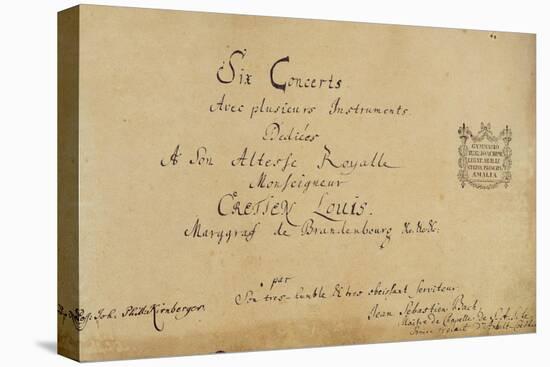 Six Concerts
Avec plusieurs Instruments.
Dediées
A Son Altesse Royalle
Monseigneur
CRETIEN Louis.
Marggraf de Brandenbourg &c. &c. &c:
par
Son tres-humble & tres obeissant serviteur
Jean Sebastien Bach.
Maitre de Chapelle de S. A. S. le
Prince regnant d'Anhalt-
Joh. Phil. Kirnberger.
GYMNASIO
LEGAT. AB ILL.
PRINCIPE
AMALIA